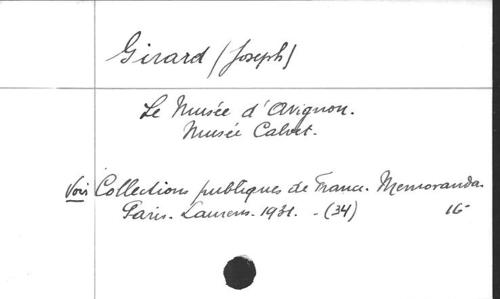 Girard (Joseph)
Le Musée d'Avignon.
Musée Calvet.
Voir Collections publiques de France. Memoranda.
Paris. Laurens. 1931. - (34) 16-